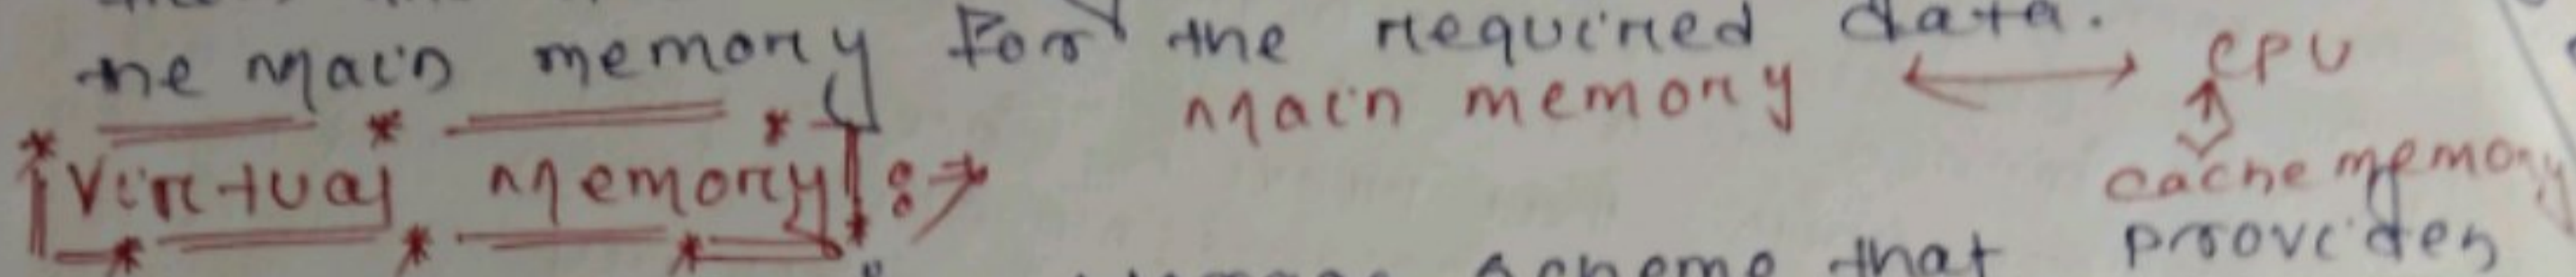 the main memory for the required data.
main memory ⟷ CPU
↕
cache memory
Virtual Memory :→
scheme that provides